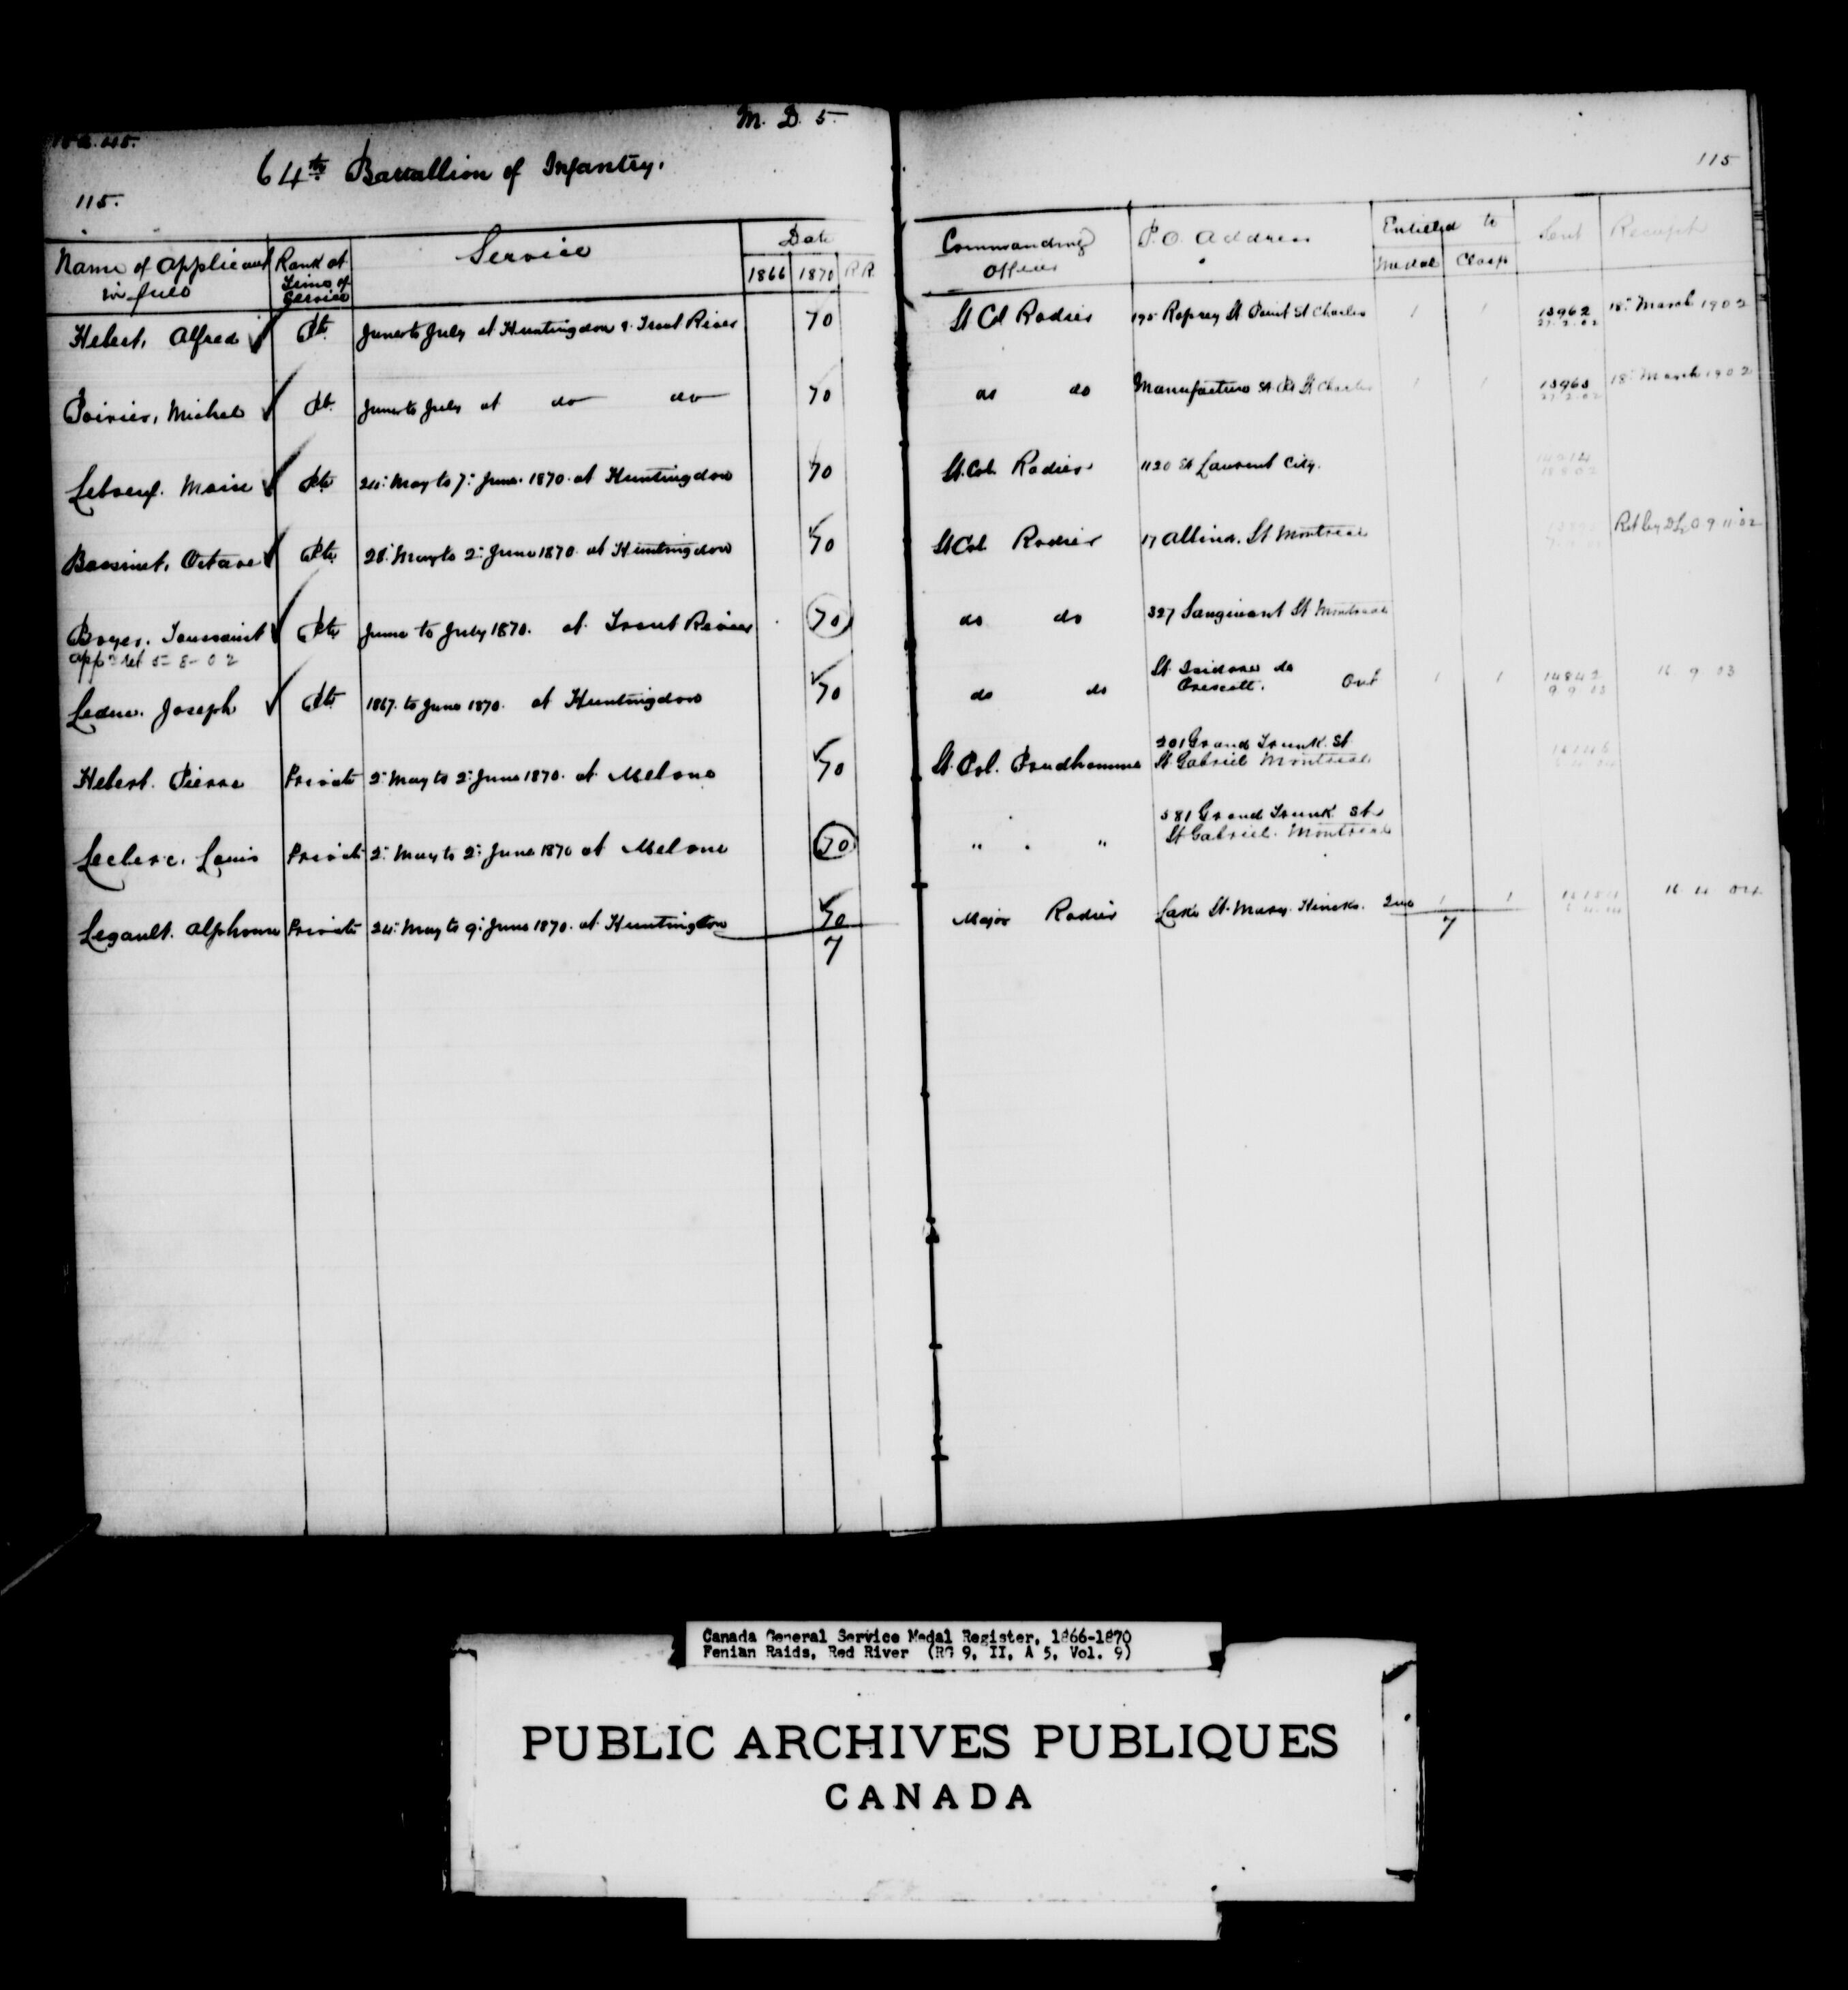 M. D. 5.
64th Battallion of Infantry.
115.
115
Name of Applicant in full
Rank at Time of Service
Service
Date
1866 1870 R.R.
Commanding Officer
P.O. Address
Entitled to
Medal Clasp
Sent
Receipt
Hebert, Alfred Pte. June to July at Huntingdon & Trout River 70 Lt Col Rodier St Point St Charles 1 1 13962 18th March 1902
Poirier, Michel Pte. June to July at do do 70 do do Manufacture St Pt St Charles 1 1 13963 18th March 1902
Leboeuf. Pte. 24th May to 7th June. 1870. at Huntingdon 70 Lt. Col. Rodier 1120 St Laurent City.
Octave Pte. 28th May to 2nd June 1870. at Huntingdon 70 Lt Col Rodier 17 St Montreal Ret by D.L.O. 9.11.02
Boyer. Toussaint Pte. June to July 1870. at Trout River 70 do do 327 St Montreal
app. ret 5-8-02
Leduc. Joseph Pte. 1867. to June 1870. at Huntingdon 70 do do St. Isidore de Prescott. Ont 1 1 14842 9 9 03 16. 9. 03
Hebert. Pierre Private 2nd May to 2nd June 1870. at 70 Lt. Col. Prudhomme 201 Grand Trunk. St St Gabriel Montreal
Leclerc. Louis Private 2nd May to 2nd June 1870 at 70 " " 581 Grand Trunk St St Gabriel. Montreal
Legault. Alphonse Private 24th May to 9th June 1870. at Huntingdon 70 Major Rodier Lake St. Mary. Hincks. Que 1 1 16 4 04
7 7
Canada General Service Medal Register, 1866-1870
Fenian Raids, Red River (RG 9, II, A 5, Vol. 9)
PUBLIC ARCHIVES PUBLIQUES
CANADA